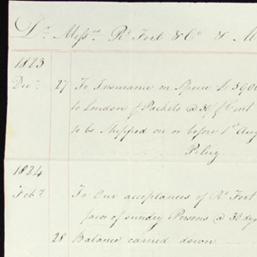 Dr. Messrs. Rt. Fort & Co. &
1823
Decr. 27 To Insurance on Specie
to London Packets @
to be Shipped on or before 1st Augt
Policy
1824
Feby. To Our acceptances of Rt. Fort
favor of sundry Persons @ 30 dys
28 Balance carried down